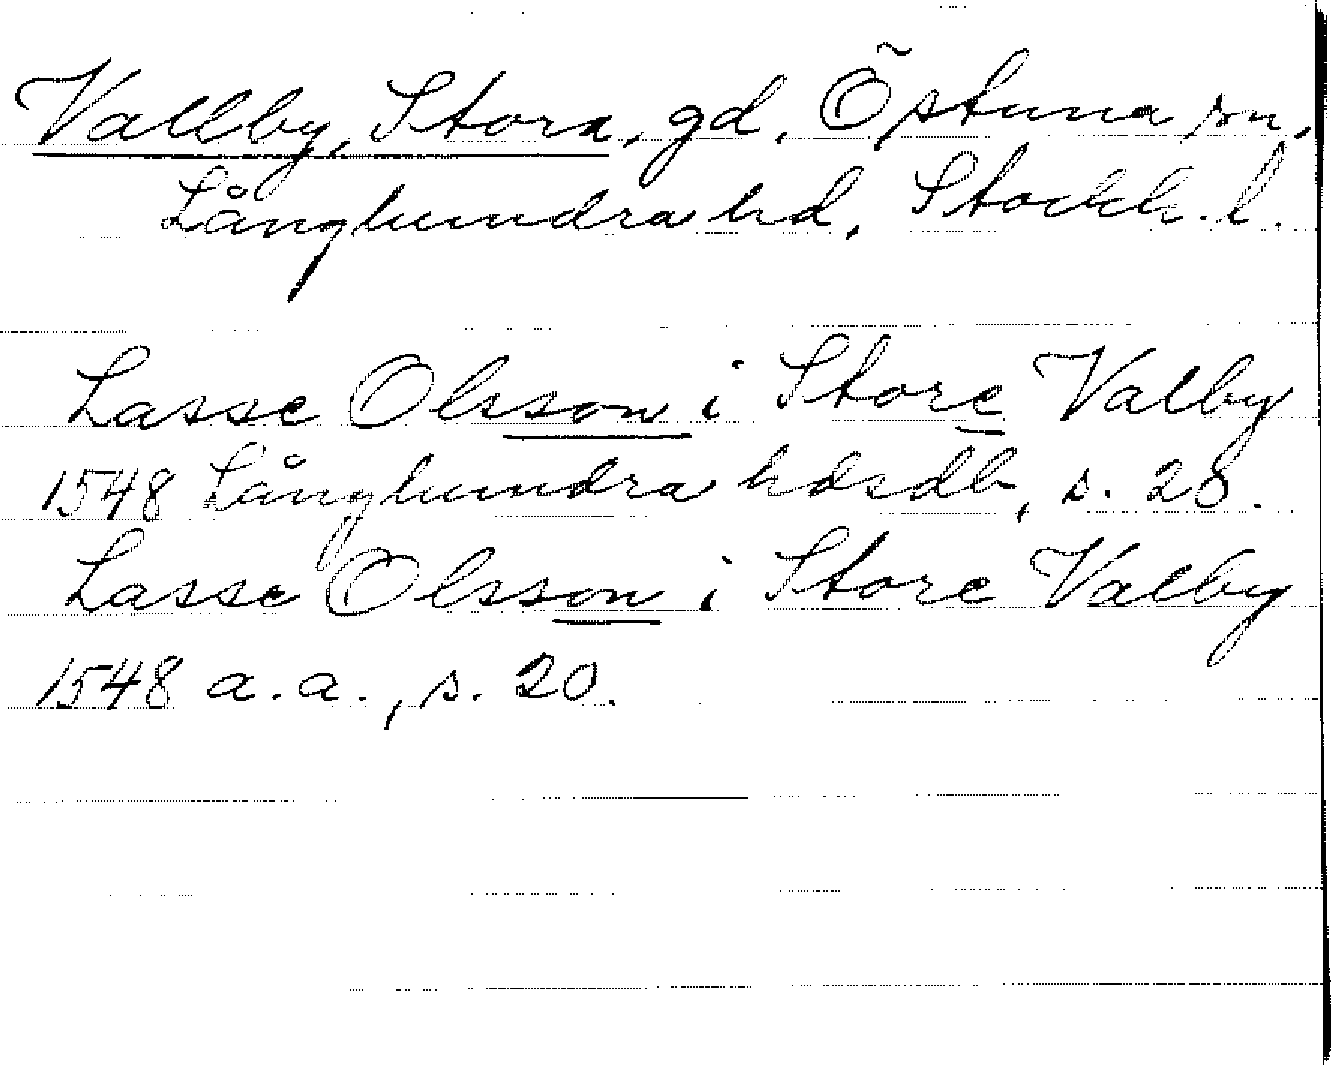 Vallby, Stora, gd, Östuna sn,
Långhundra hd, Stockh. l.
Lasse Olsson i Store Valby
1548 Långhundra hdsdb, s. 28.
Lasse Olsson i Store Valby
1548 a.a., s. 20.